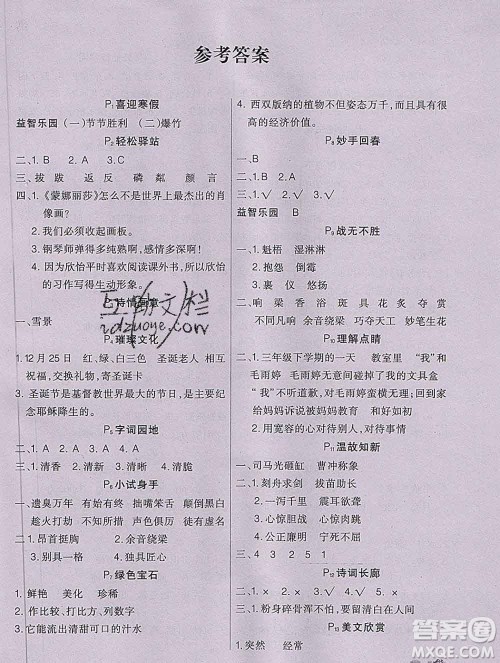 参考答案
P₁喜迎寒假
益智乐园 (一)节节胜利 (二)爆竹
轻松驿站
二、1. B 2. A 3. A
三、拔 跋 琪 棋 磷 粼 颜 言
四、1.《蒙娜丽莎》怎么不是世界上最杰出的肖
像画?
2. 我们必须收起画板。
3. 钢琴师弹得多纯熟啊,感情多深啊!
4. 因为欣怡平时喜欢阅读课外书,所以欣怡
的习作写得生动形象。
诗情画意
一、雪景
璀璨文化
1. 12月25日 红、绿、白三色 圣诞老人 相互
祝福,交换礼物,寄圣诞卡
2. 圣诞节是基督教世界最大的节日,是为了
纪念耶稣降生的。
字词园地
二、1. A 2. A 3. A 4. A
三、1. 清香 2. 清楚 3. 清晰 4. 清贫
小试身手
一、遗臭万年 始终如一 拙嘴笨舌 颠沛流离
趁火打劫 不知所措 声色俱厉 应对如流
二、1. 昂首挺胸 2. 余音绕梁
3. 别具一格 4. 冥思苦想
绿色宝石
1. 鲜艳 美化 珍稀
2. 作比较、打比方、列数字
3. 它能流出清甜可口的汁水
4. 西双版纳的植物不但姿态万千,而且还有很
高的经济价值。
妙手回春
一、B
二、1. B 2. A
三、1. √ 2. √ 3. √
益智乐园 B
战无不胜
一、1. 魁梧 湿淋淋
2. 抱怨 倒霉
3. 裹 仪 扬
二、响 梁 香 浴 斑 具 花 炙 夺 赏
不同凡响 余音绕梁 巧夺天工 妙笔生花
P₁₀理解点睛
一、1. 三年级下学期的一天 教室里 “我”和
毛雨婷 毛雨婷打碎了我的文具盒
“我”对着毛雨婷大发雷霆 “我”回家
给妈妈告状被妈妈教育 和好如初
2. 用宽容的心对待任何人、对待事情。
P₁₁温故知新
一、司马光砸缸 曹冲称象
二、1. 刻舟求剑 拔苗助长
2. 一泻千里 震耳欲聋
3. 心惊胆战 心惊肉跳
4. 公正廉明 宁死不屈
三、4 3 2 5 1
P₁₂诗词长廊
一、粉身碎骨浑不怕 要留清白在人间
P₁₃美文欣赏
1. 突然 经常
互助文栏
hdzuoye.com
答案圈